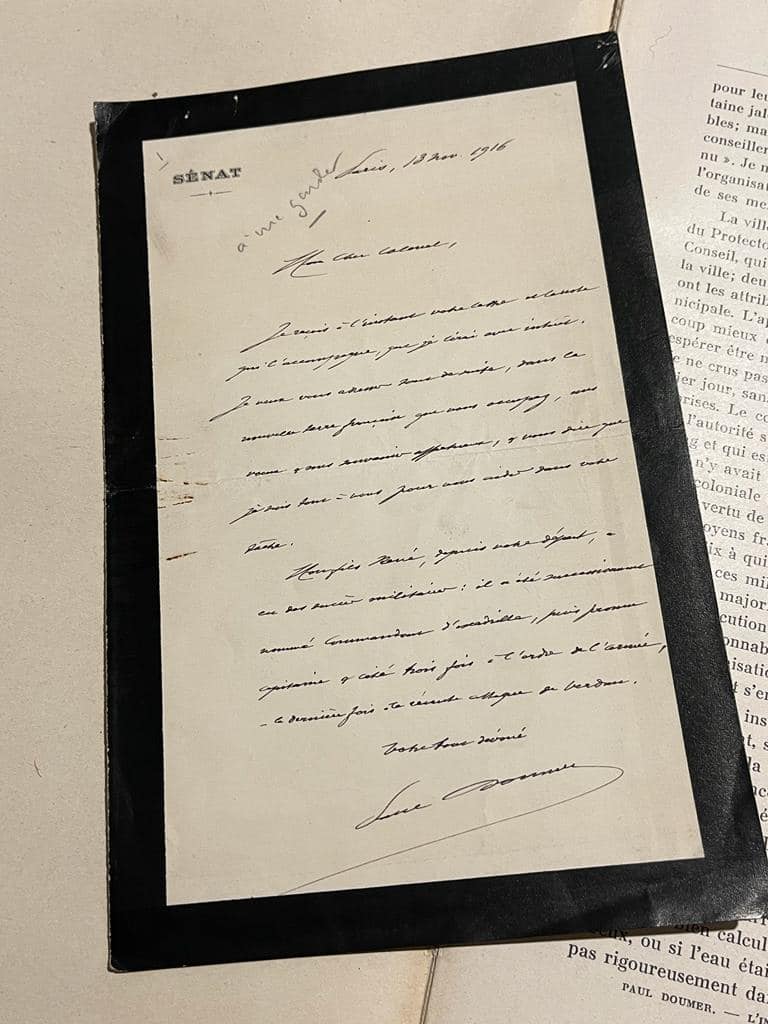 SÉNAT
Paris, 18 nov. 1916
à me garder
Mon cher Colonel,
Je reçois à l'instant votre lettre et la note
qui l'accompagne, que je lirai avec intérêt.
Je veux vous adresser tout de suite, dans la
nouvelle terre française que vous occupez, mes
vœux & mes souvenirs affectueux, & vous dire que
je suis tout à vous pour vous aider dans votre
tâche.
Mon fils René, depuis votre départ, a
eu des succès militaires : il a été successivement
nommé Commandant d'escadrille, puis promu
capitaine & cité trois fois à l'ordre de l'armée,
la dernière fois à la récente attaque de Verdun.
Votre tout dévoué
Paul Doumer
pour leu
taine jal
bles; ma
conseiller
nu ». Je n
l'organisa
de ses me
La vill
du Protecto
Conseil, qui
la ville; deu
ont les attrib
nicipale. L'a
coup mieux
espérer être n
e ne crus pas
ier jour, san
rises. Le co
l'autorité s
g et qui es
n'y avait
coloniale
vertu de
oyens fr
ix à qui
ces mil
major
cution
onnab
isatio
t s'en
ins
t, s
la
bien calcul
eux, ou si l'eau étai
pas rigoureusement da
PAUL DOUMER. — L'I